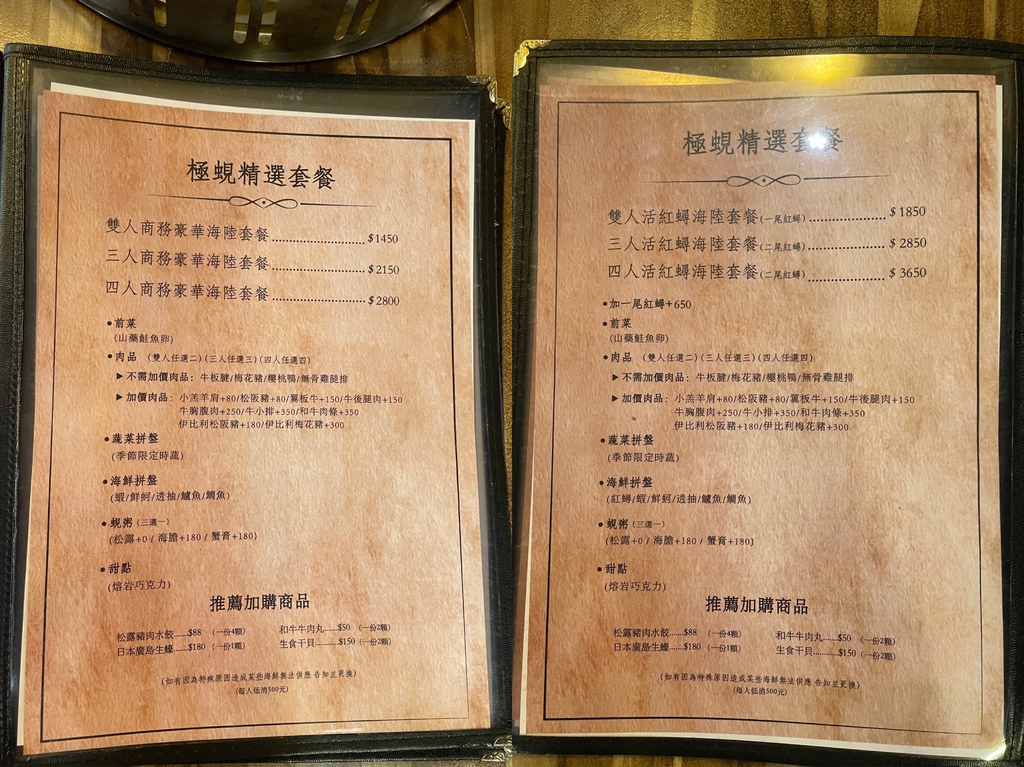 極蜆精選套餐
雙人商務豪華海陸套餐 $1450
三人商務豪華海陸套餐 $2150
四人商務豪華海陸套餐 $2800
•前菜
(山藥鮭魚卵)
•肉品 (雙人任選二)(三人任選三)(四人任選四)
▶不需加價肉品：牛板腱/梅花豬/櫻桃鴨/無骨雞腿排
▶加價肉品：小羔羊肩+80/松阪豬+80/翼板牛+150/牛後腿肉+150
牛胸腹肉+250/牛小排+350/和牛肉條+350
伊比利松阪豬+180/伊比利梅花豬+300
•蔬菜拼盤
(季節限定時蔬)
•海鮮拼盤
(蝦/鮮蚵/透抽/鱸魚/鯛魚)
•蜆粥(三選一)
(松露+0 / 海膽+180 / 蟹膏+180)
•甜點
(熔岩巧克力)
推薦加購商品
松露豬肉水餃......$88 (一份4顆) 和牛牛肉丸......$50 (一份2顆)
日本廣島生蠔......$180 (一份1顆) 生食干貝...........$150 (一份2顆)
(如有因為特殊原因造成某些海鮮無法供應 告知並更換)
(每人低消500元)
極蜆精選套餐
雙人活紅蟳海陸套餐(一尾紅蟳) $1850
三人活紅蟳海陸套餐(二尾紅蟳) $2850
四人活紅蟳海陸套餐(二尾紅蟳) $3650
•加一尾紅蟳+650
•前菜
(山藥鮭魚卵)
•肉品 (雙人任選二)(三人任選三)(四人任選四)
▶不需加價肉品：牛板腱/梅花豬/櫻桃鴨/無骨雞腿排
▶加價肉品：小羔羊肩+80/松阪豬+80/翼板牛+150/牛後腿肉+150
牛胸腹肉+250/牛小排+350/和牛肉條+350
伊比利松阪豬+180/伊比利梅花豬+300
•蔬菜拼盤
(季節限定時蔬)
•海鮮拼盤
(紅蟳/蝦/鮮蚵/透抽/鱸魚/鯛魚)
•蜆粥(三選一)
(松露+0 / 海膽+180 / 蟹膏+180)
•甜點
(熔岩巧克力)
推薦加購商品
松露豬肉水餃......$88 (一份4顆) 和牛牛肉丸......$50 (一份2顆)
日本廣島生蠔......$180 (一份1顆) 生食干貝...........$150 (一份2顆)
(如有因為特殊原因造成某些海鮮無法供應 告知並更換)
(每人低消500元)